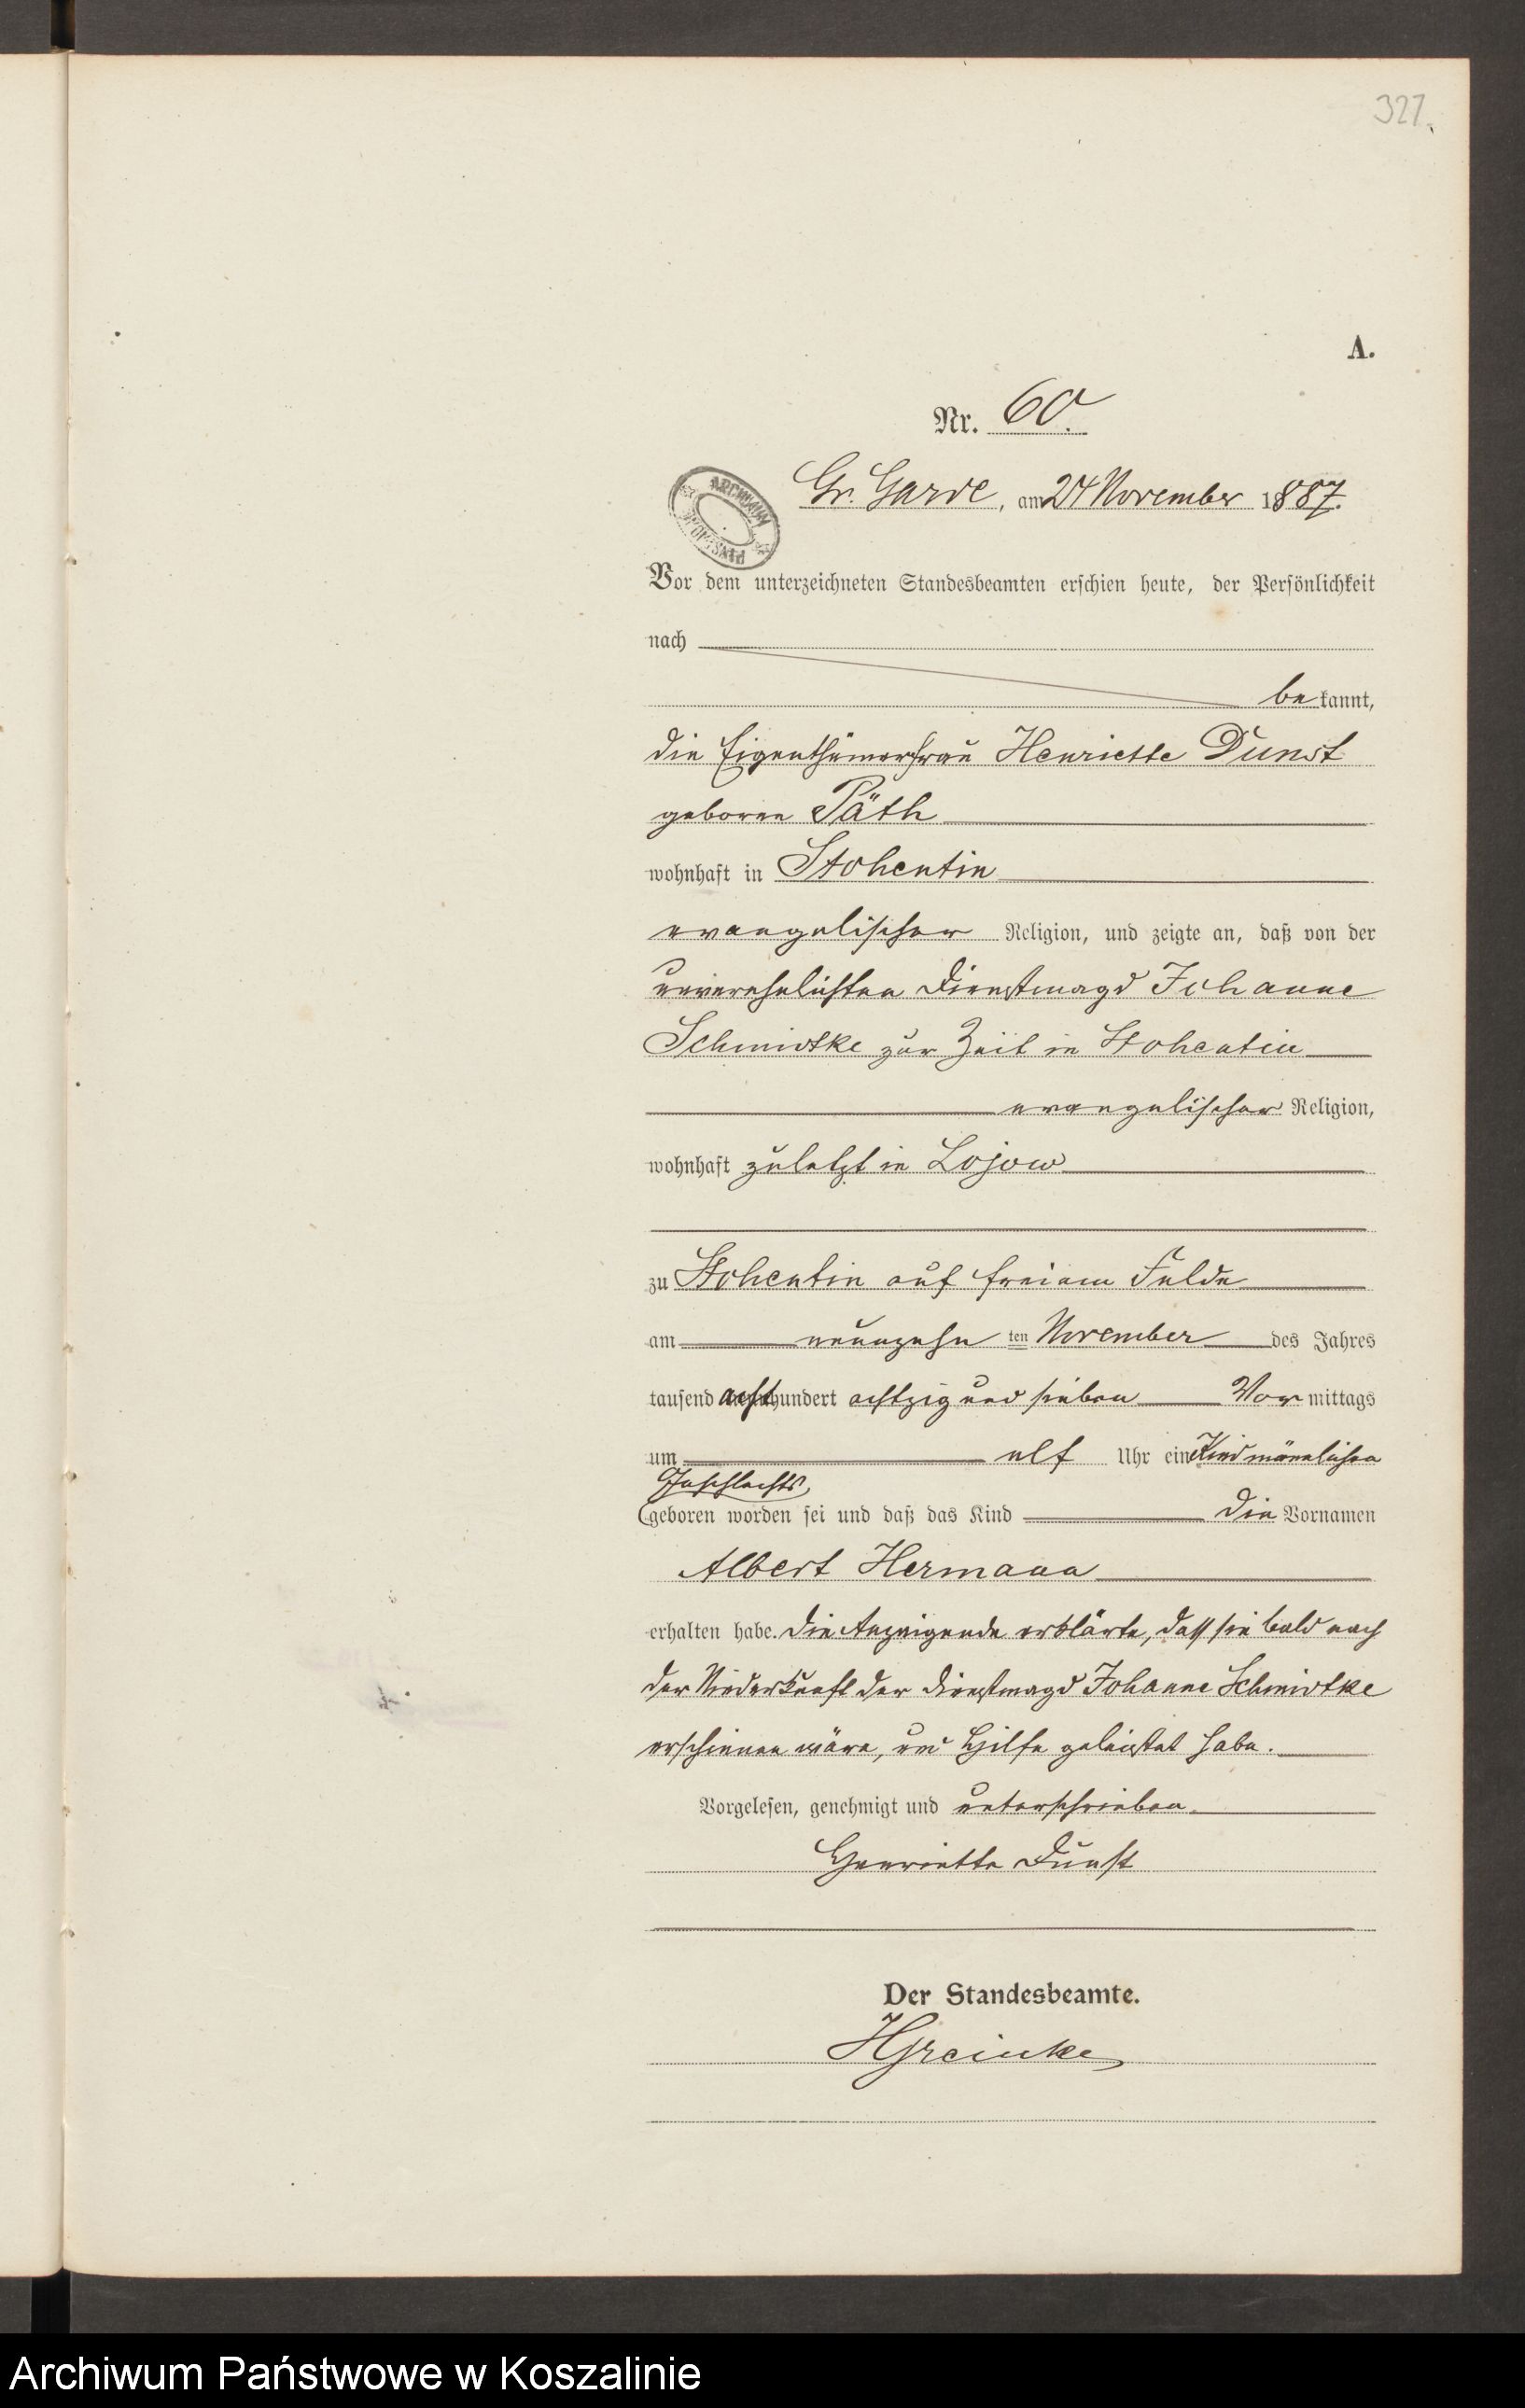 321.
A.
Nr. 60.
Gr. Garde, am 24 November 1887.
ARCHIWUM PAŃSTWOWE
Vor dem unterzeichneten Standesbeamten erschien heute, der Persönlichkeit
nach
bekannt,
die Eigenthümerfrau Henriette Dunst
geborene Päth
wohnhaft in Stohentin
evangelischer Religion, und zeigte an, daß von der
unverehelichten Dienstmagd Johanne
Schmidtke zur Zeit in Stohentin
evangelischer Religion,
wohnhaft zuletzt in Lojow
zu Stohentin auf freiem Felde
am neunzehn ten November des Jahres
tausend acht hundert achtzig und sieben Vormittags
um elf Uhr ein Kind männlichen
Geschlechts
geboren worden sei und daß das Kind die Vornamen
Albert Hermann
erhalten habe. Die Anzeigende erklärte, daß sie bald nach
der Niederkunft der Dienstmagd Johanne Schmidtke
erschienen wäre, und Hilfe geleistet habe.
Vorgelesen, genehmigt und unterschrieben
Henriette Dunst
Der Standesbeamte.
HGreinke
Archiwum Państwowe w Koszalinie